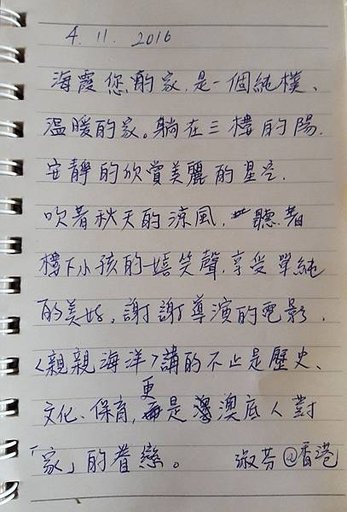 4. 11. 2016
海霞您的家,是一個純樸、
溫暖的家。躺在三樓的陽.
安靜的欣賞美麗的星空.
吹著秋天的涼風.聽著
樓下小孩的嬉笑聲,享受單純
的美好,謝謝導演的電影,
<親親海洋>講的不止是歷史、
更
文化、保育,是澳底人對
「家」的眷戀。 淑芬@香港